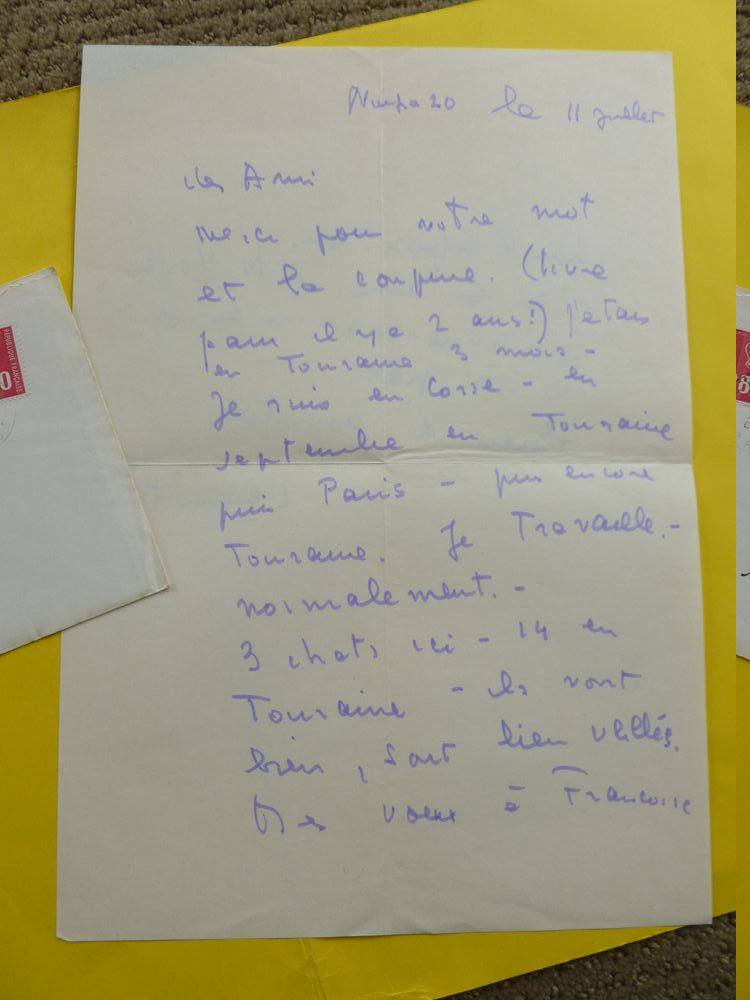 Nunpazo le 11 juillet
cher Ami
merci pour votre mot
et la coupure. (livre
paru il y a 2 ans!) j'étais
en Touraine 3 mois -
Je suis en Corse - en
septembre en Touraine
puis Paris - puis encore
Touraine. Je Travaille. -
normalement. -
3 chats ici - 14 en
Touraine - ils vont
bien, sont bien veillés.
Mes vœux à Francoise
REPUBLIQUE FRANCAISE
0
8